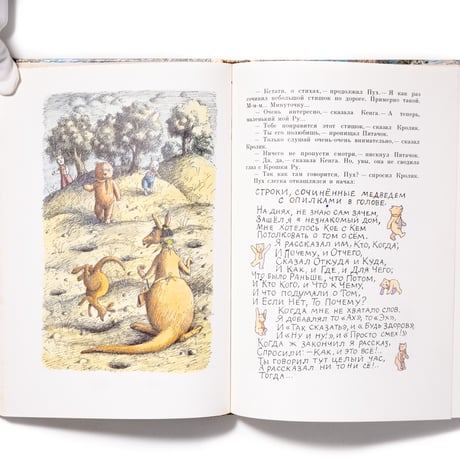 — Кстати, о стихах,— продолжил Пух.— Я как раз
сочинил небольшой стишок по дороге. Примерно такой.
М-м-м.. Минуточку...
— Очень интересно,— сказала Кенга.— А теперь,
маленький мой Ру...
— Тебе понравится этот стишок,— сказал Кролик.
— Ты его полюбишь,— пропищал Пятачок.
— Только слушай очень-очень внимательно,— сказал
Кролик.
— Ничего не пропусти смотри,— пискнул Пятачок.
— Да, да,— сказала Кенга. Но, увы, она не сводила
глаз с Крошки Ру.
— Так как там говорится, Пух? — спросил Кролик.
Пух слегка откашлялся и начал:
СТРОКИ, СОЧИНЁННЫЕ МЕДВЕДЕМ
С ОПИЛКАМИ В ГОЛОВЕ.
НА ДНЯХ, НЕ ЗНАЮ САМ ЗАЧЕМ,
ЗАШЁЛ Я В НЕЗНАКОМЫЙ ДОМ,
МНЕ ХОТЕЛОСЬ КОЕ С КЕМ
ПОТОЛКОВАТЬ О ТОМ О СЁМ.
Я РАССКАЗАЛ ИМ, КТО, КОГДА,
И ПОЧЕМУ, И ОТЧЕГО,
СКАЗАЛ ОТКУДА И КУДА,
И КАК, И ГДЕ, И ДЛЯ ЧЕГО;
ЧТО БЫЛО РАНЬШЕ, ЧТО ПОТОМ,
И КТО КОГО, И ЧТО К ЧЕМУ,
И ЧТО ПОДУМАЛИ О ТОМ,
И ЕСЛИ НЕТ, ТО ПОЧЕМУ?
КОГДА МНЕ НЕ ХВАТАЛО СЛОВ,
Я ДОБАВЛЯЛ ТО «АХ», ТО «ЭХ»,
И «ТАК СКАЗАТЬ», И «БУДЬ ЗДОРОВ»,
И «НУ И НУ!» И «ПРОСТО СМЕХ!»
КОГДА Ж ЗАКОНЧИЛ Я РАССКАЗ,
СПРОСИЛИ:—КАК, И ЭТО ВСЕ!..
ТЫ ГОВОРИЛ ТУТ ЦЕЛЫЙ ЧАС,
А РАССКАЗАЛ НИ ТО НИ СЁ!..
ТОГДА...